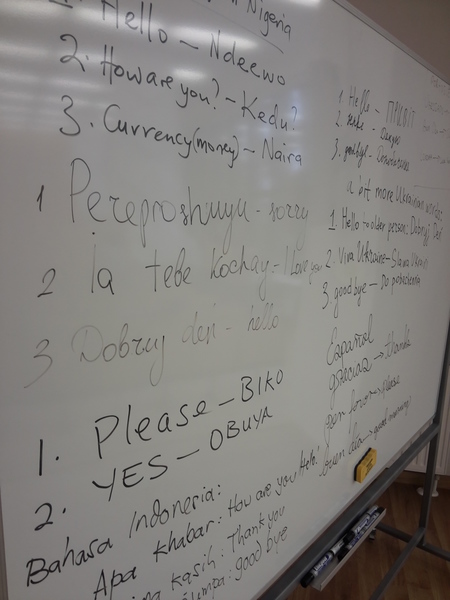 Nigeria
1. Hello – Ndeewo
2. How are you? – Kedu?
3. Currency (money) – Naira
1 Pereproshuyu - sorry
2 Ia tebe kochay - I love you
3 Dobruj deń - hello
1. Please – BIKO
2. YES – OBUYA
Bahasa Indonesia:
Apa khabar: How are you Hello!
kasih: Thank you
good bye
1 Hello – ПРИВІТ
2.
3. goodbye -
a bit more Ukrainian words:
1. Hello to older person: Dobryj Deń
2. Viva Ukraine – Slava Ukraini
3. goodbye – Do pobachenia
Español
gracias → thanks
por favor → please
buen día → good morning!